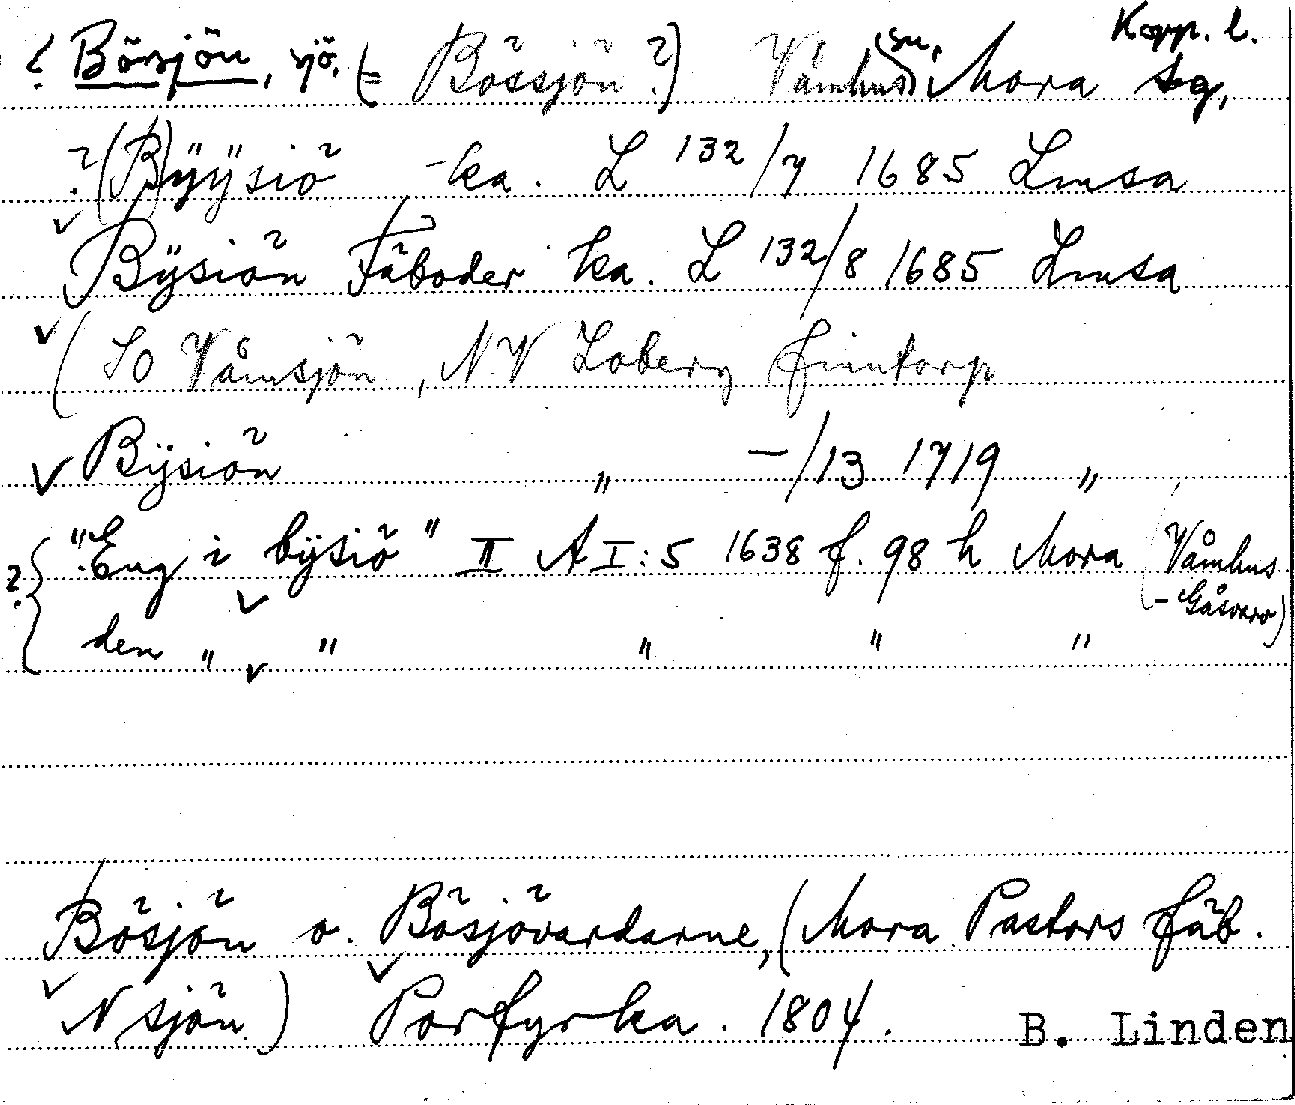 Kopp. l.
? Börsjön, sjö, (= Bössjön?) Våmhus sn, Mora tg,
? (B)ÿÿsiö -ka. L 132/7 1685 Lmsa
Bÿsiön Fäboder ka. L 132/8 1685 Lmsa
(SO Våmsjön, NV Loberg finntorp
Bÿsiön " -/13 1719 "
? "Eng i bÿsiö" II A I:5 1638 f. 98 h Mora (Våmhus
- Gåsvarv)
den " " " " "
Bösjön o. Bösjövardarne, (Mora Pastors fäb.
N sjön) Porfyrka. 1804.
B. Linden